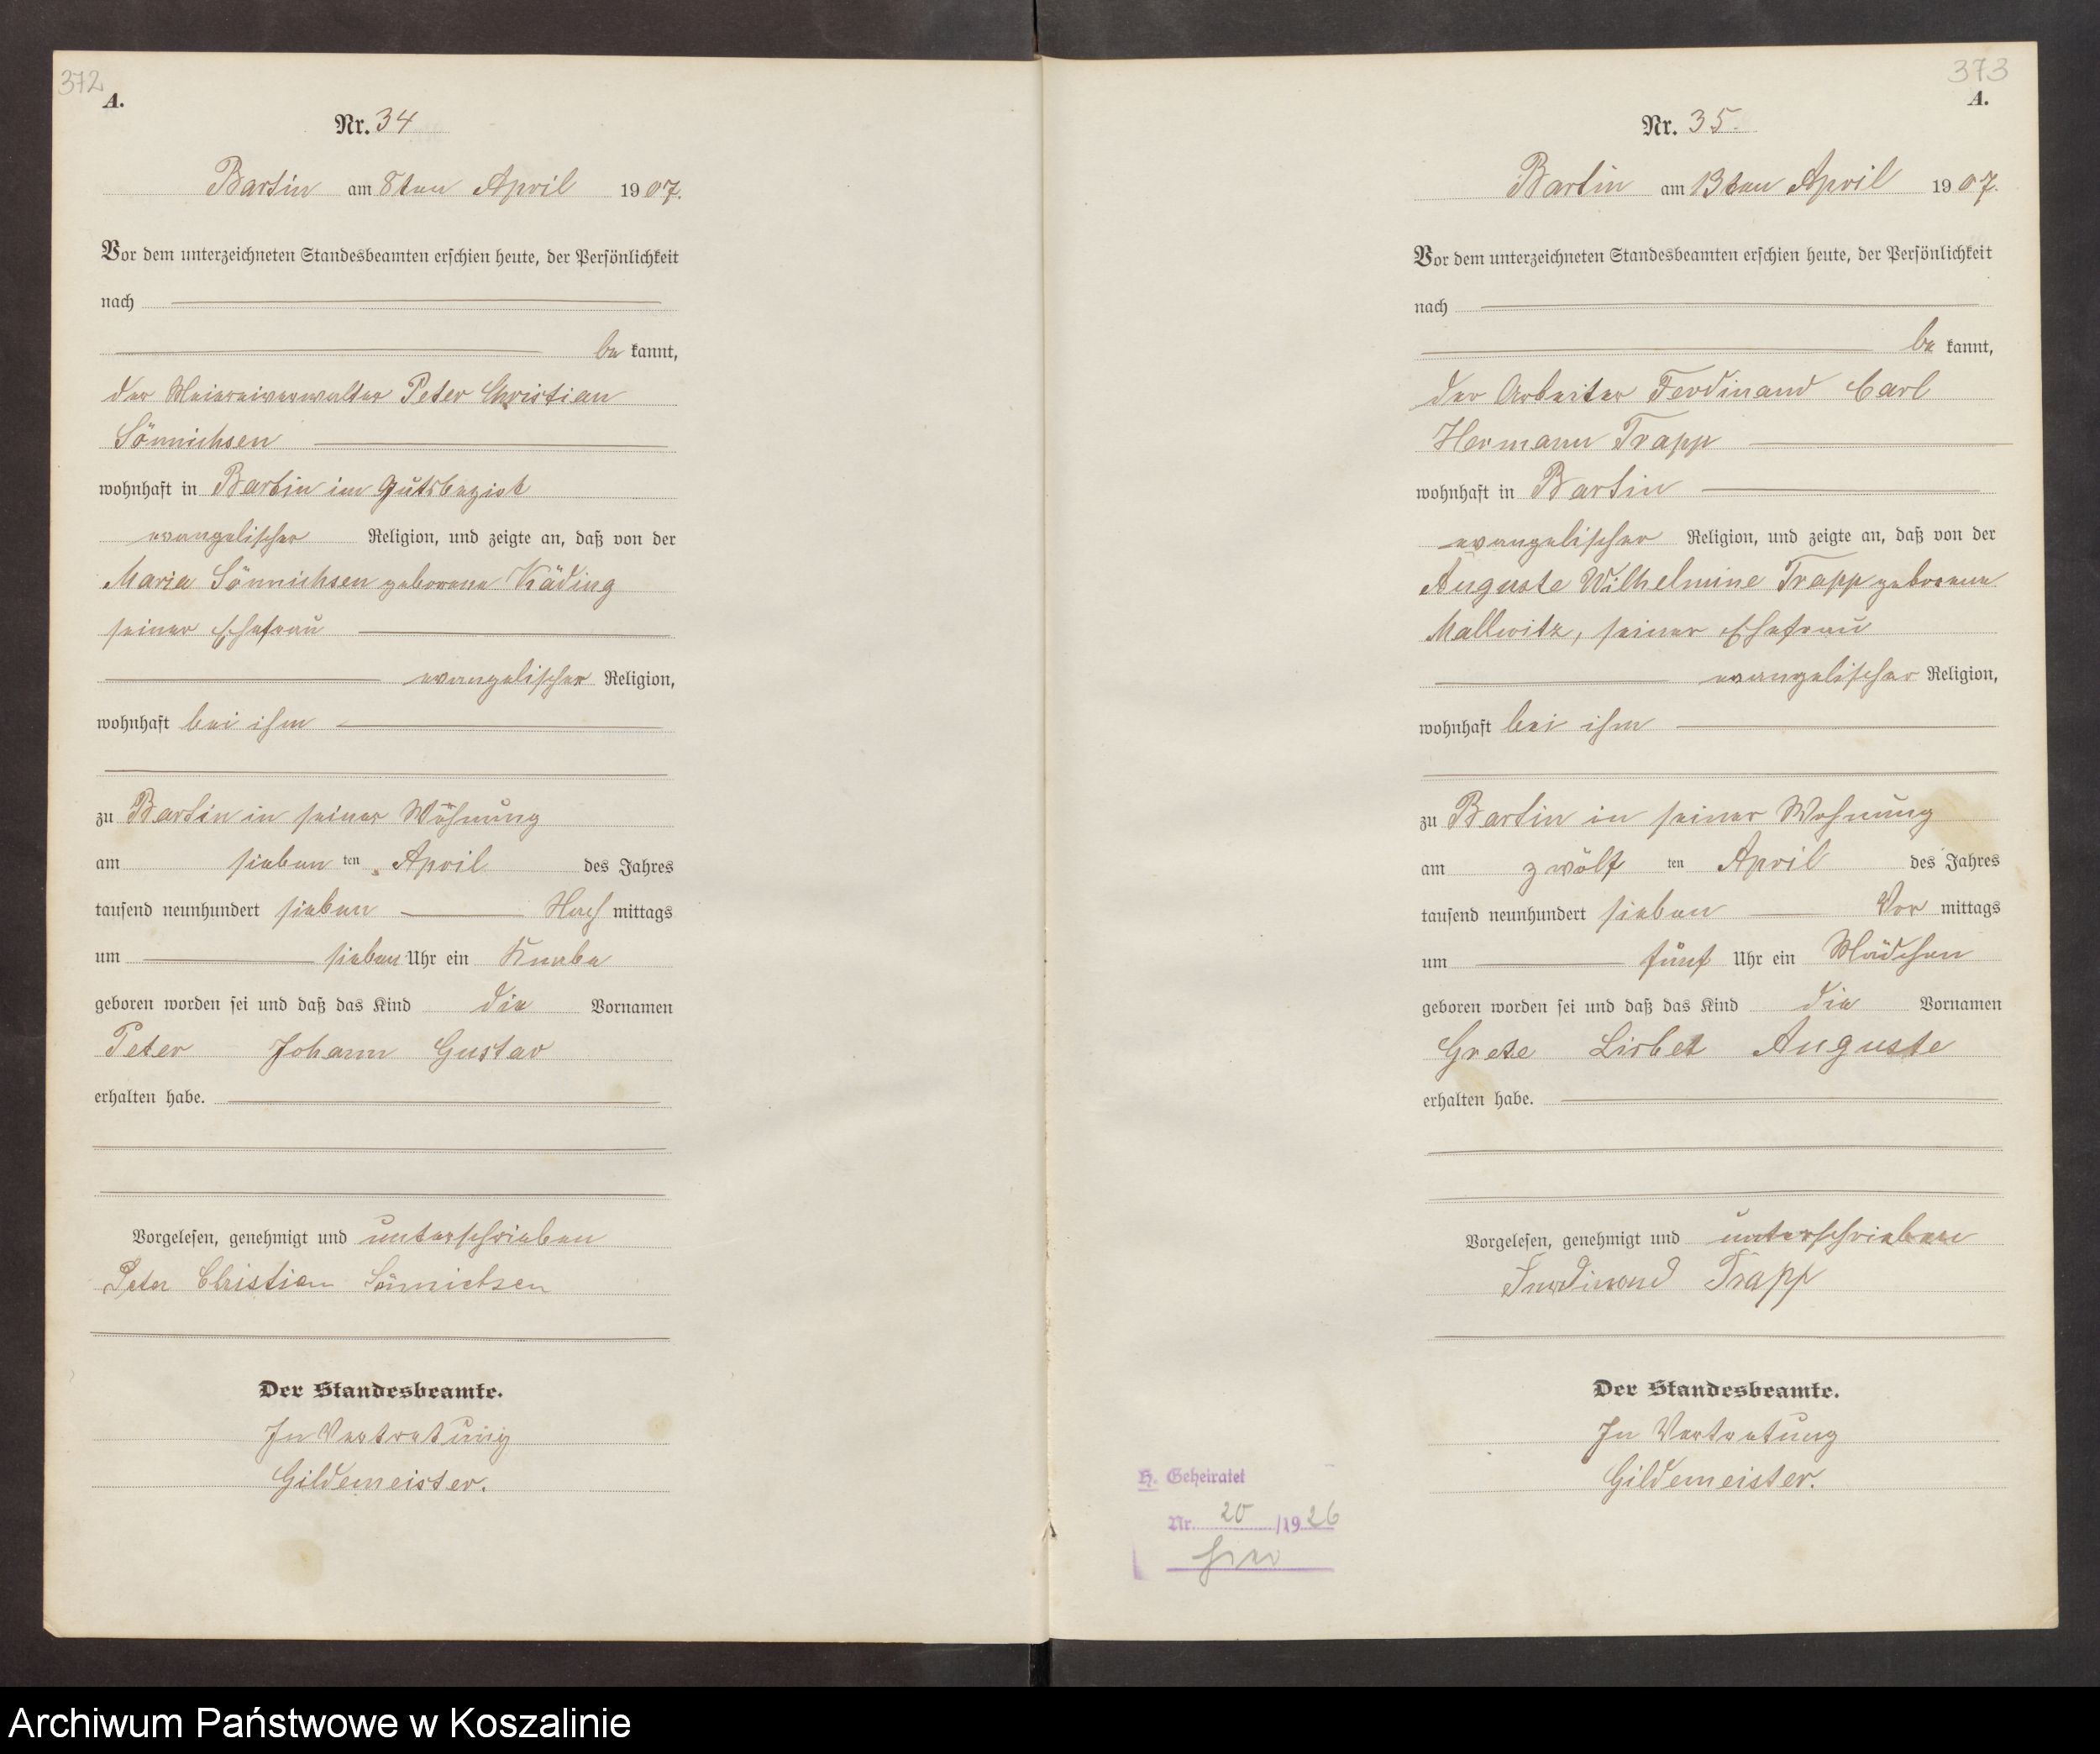 372
A.
Nr. 34
Bartin am 8ten April 1907.
Vor dem unterzeichneten Standesbeamten erschien heute, der Persönlichkeit
nach
be kannt,
der Meiereiverwalter Peter Christian
Sönnichsen
wohnhaft in Bartin im Gutsbezirk
evangelischer Religion, und zeigte an, daß von der
Maria Sönnichsen geborene Käding
seiner Ehefrau
evangelischer Religion,
wohnhaft bei ihm
zu Bartin in seiner Wohnung
am sieben ten April des Jahres
tausend neunhundert sieben Nach mittags
um sieben Uhr ein Knabe
geboren worden sei und daß das Kind die Vornamen
Peter Johann Gustav
erhalten habe.
Vorgelesen, genehmigt und unterschrieben
Peter Christian Sönnichsen
Der Standesbeamte.
In Vertretung
Gildemeister.
373
A.
Nr. 35.
Bartin am 13ten April 1907.
Vor dem unterzeichneten Standesbeamten erschien heute, der Persönlichkeit
nach
be kannt,
der Arbeiter Ferdinand Carl
Hermann Trapp
wohnhaft in Bartin
evangelischer Religion, und zeigte an, daß von der
Auguste Wilhelmine Trapp geborene
Mallwitz, seiner Ehefrau
evangelischer Religion,
wohnhaft bei ihm
zu Bartin in seiner Wohnung
am zwölf ten April des Jahres
tausend neunhundert sieben Vor mittags
um fünf Uhr ein Mädchen
geboren worden sei und daß das Kind die Vornamen
Grete Lisbet Auguste
erhalten habe.
Vorgelesen, genehmigt und unterschrieben
Ferdinand Trapp
Der Standesbeamte.
In Vertretung
Gildemeister.
H. Geheiratet
Nr. 20 /1926
hier
Archiwum Państwowe w Koszalinie